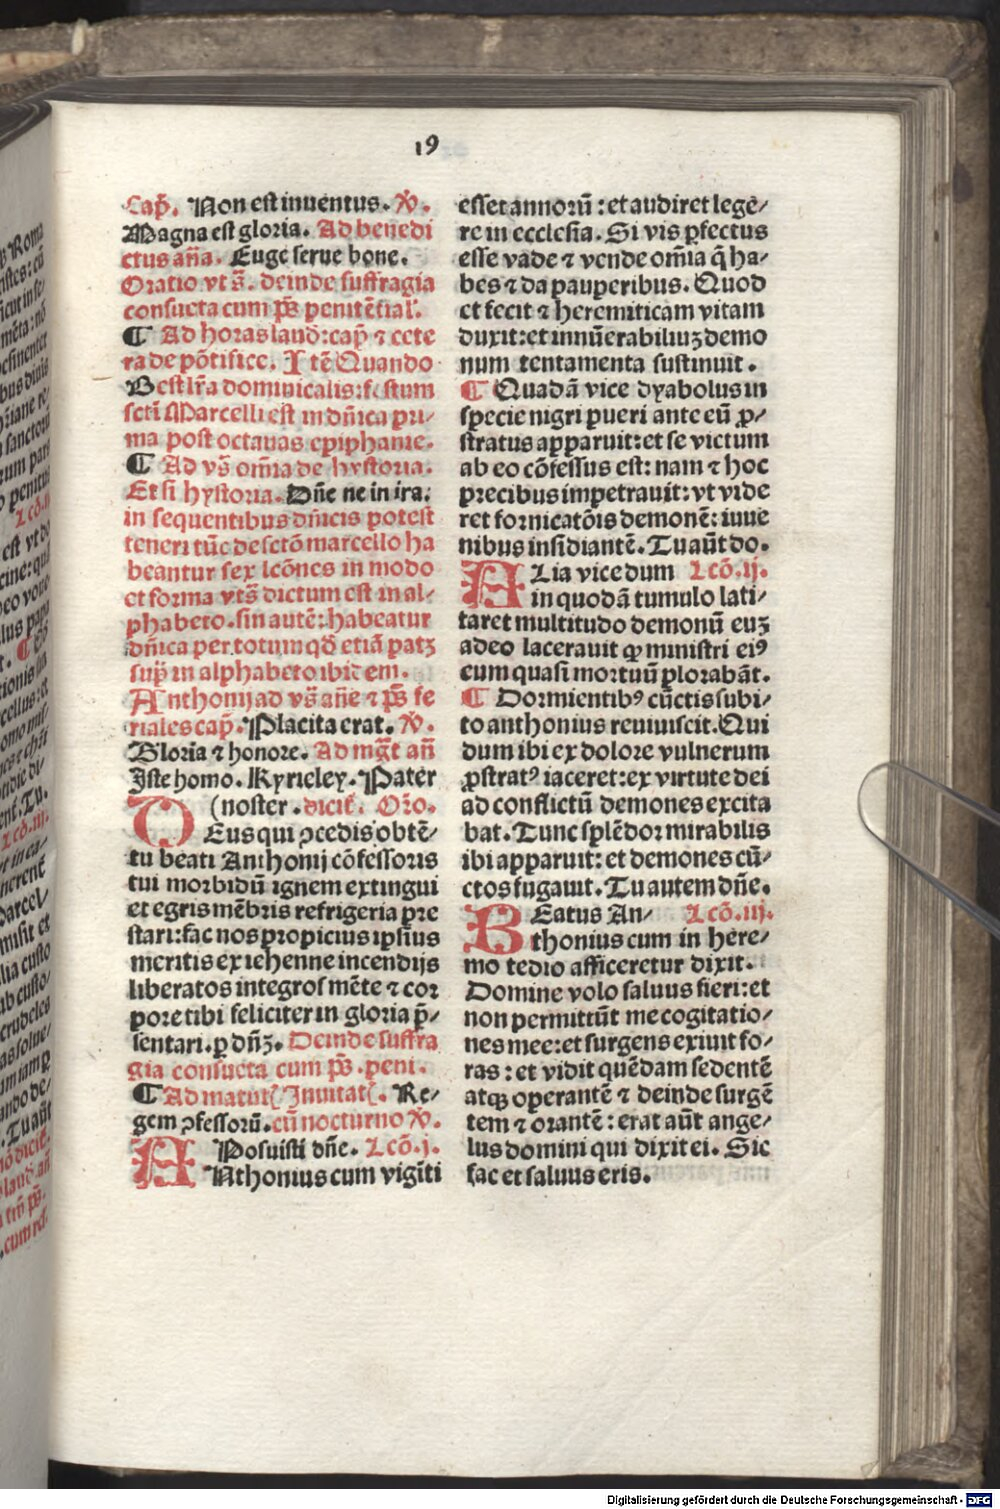 19
Cap̄. Non est inuentus. V̄.
Magna est gloria. Ad benedi
ctus an̄a. Euge serue bone.
Oratio vt s̄. deinde suffragia
consueta cum ps̄ penitētial.
¶ Ad horas laud̄: cap̄ ⁊ cete
ra de pōtifice. Itē Quando
B est lr̄a dominicalis: festum
sctī Marcelli est in dn̄ica pri⸗
ma post octauas epiphanie.
¶ Ad vs̄ om̄ia de hystoria.
Et si hystoria. Dn̄e ne in ira.
in sequentibus dn̄icis potest
teneri tūc de sctō marcello ha
beantur sex lcōnes in modo
et forma vts̄ dictum est in al⸗
phabeto. sin autē: habeatur
dn̄ica per totum qd̄ etiā patꝫ
sup̄ in alphabeto ibidem.
Anthonij ad vs̄ an̄e ⁊ ps̄ fe
riales cap̄. Placita erat. V̄.
Gloria ⁊ honore. Ad mḡt an̄
Iste homo. Kyrieley. Pater
(noster. dicit̄. Or̄o.
DEus qui ꝯcedis obtē⸗
tu beati Anthonij cōfessoris
tui morbidū ignem extingui
et egris mēbris refrigeria pre
stari: fac nos propicius ipsius
meritis ex iehenne incendijs
liberatos integros mēte ⁊ cor
pore tibi feliciter in gloria p̄⸗
sentari. ꝑ dn̄ꝫ. Deinde suffra
gia consueta cum ps̄. peni.
¶ Ad matut. Inuitat. Re⸗
gem ꝯfessorū. cū nocturno V̄.
Posuisti dn̄e. Lcō. j.
ANthonius cum vigīti
esset annorū: et audiret lege⸗
re in ecclesia. Si vis ꝑfectus
esse vade ⁊ vende om̄ia q̄ ha⸗
bes ⁊ da pauperibus. Quod
et fecit ⁊ heremiticam vitam
duxit: et innūerabiliuꝫ demo
num tentamenta sustinuit.
¶ Quadā vice dyabolus in
specie nigri pueri ante eū ꝓ⸗
stratus apparuit: et se victum
ab eo cōfessus est: nam ⁊ hoc
precibus impetrauit: vt vide
ret fornicatōis demonē: iuue
nibus insidiantē. Tu aūt do.
ALia vice dum Lcō. ij.
in quodā tumulo lati⸗
taret multitudo demonū euꝫ
adeo lacerauit ꝙ ministri eiꝰ
cum quasi mortuū plorabāt.
¶ Dormientibꝰ cūctis subi⸗
to anthonius reuiuiscit. Qui
dum ibi ex dolore vulnerum
ꝓstratꝰ iaceret: ex virtute dei
ad conflictū demones excita
bat. Tunc splēdor mirabilis
ibi apparuit: et demones cū⸗
ctos fugauit. Tu autem dn̄e.
BEatus An⸗ Lcō. iij.
thonius cum in here⸗
mo tedio afficeretur dixit.
Domine volo saluus fieri: et
non permittūt me cogitatio⸗
nes mee: et surgens exiuit fo⸗
ras: et vidit quēdam sedentē
atqꝫ operantē ⁊ deinde surgē
tem ⁊ orantē: erat aūt ange⸗
lus domini qui dixit ei. Sic
fac et saluus eris.
Digitalisierung gefördert durch die Deutsche Forschungsgemeinschaft - DFG